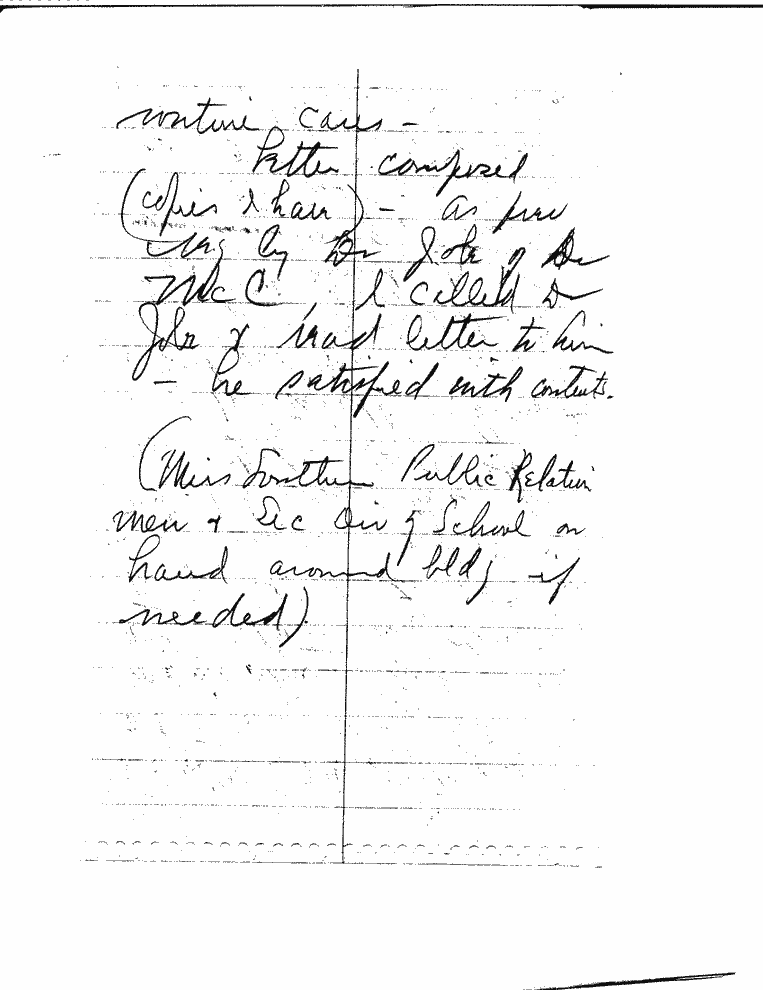 routine cases -
letter composed
(copies I have) - as prev
by Dr Jolr & Dr
McC, I called Dr
Jolr & read letter to him
- he satisfied with contents.
(Miss Public Relation
men & Sec Div of School on
hand around bldg if
needed)